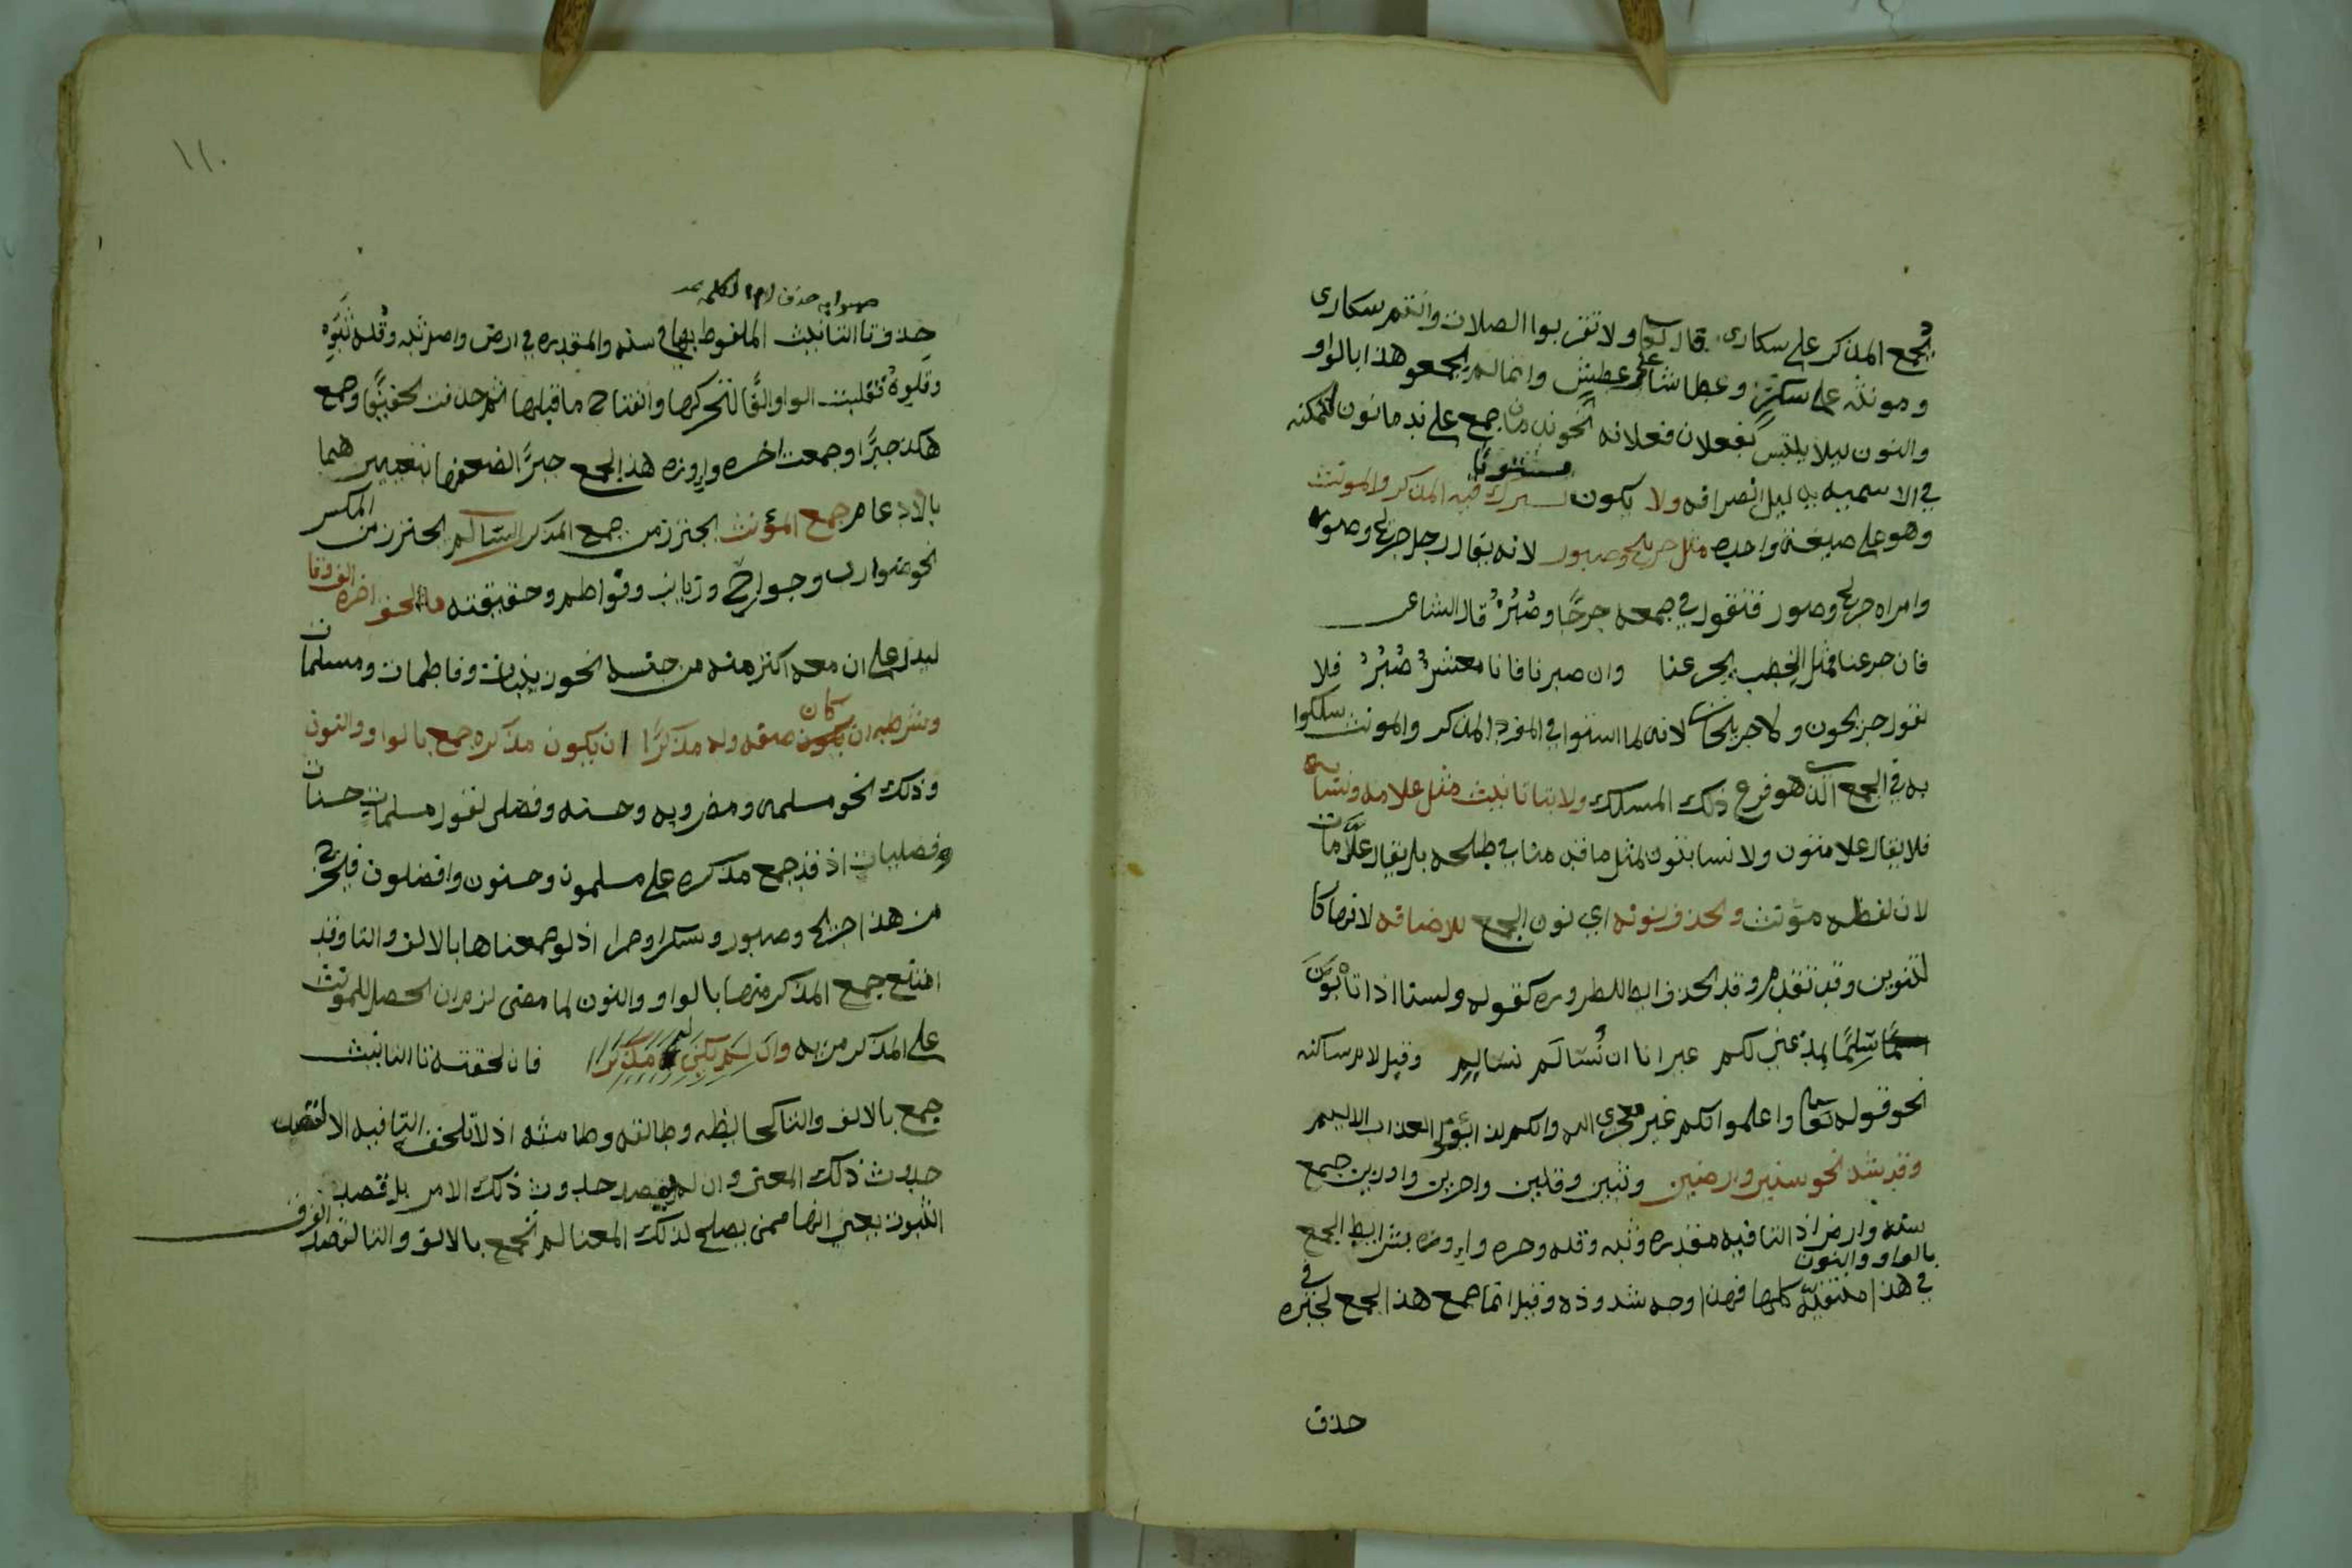 يجمع المذكر على سكارى قال تعالى ولا تقربوا الصلاة وانتم سكارى
ومونثه على سكرى وعطاشا على عطش وانما لم يجمعو هذا بالواو
والنون ليلا يلتبس بفعلان فعلانه نحو ندمان جمع على ندمانون لتمكنه
في الاسميه بدليل انصرافه ولا يكون مستويا فيه المذكر والمونث
وهو على صيغة واحده مثل جريح وصبور لانه يقال رجل جريح وصبور
وامراه جريح وصبور فتقول في جمعه جرحا وصُبُرٌ قال الشاعر
فان جزعنا فمثل الخطب يجزعنا وان صبرنا فانا معشرٌ صُبُرُ فلا
تقول جريحون ولا جريحات لانه لما استوا في المفرد المذكر والمونث سلكوا
به في الجمع الذي هو فرع ذلك المسلك ولا بتا تانيث مثل علامه ونسابه
فلا يقال علامتون ولا نسابتون لمثل ما قيل في طلحه بل يقال علّامات
لان لفظه مؤنث وتحذف نونه اي نون الجمع للاضافه لانها كا
لتنوين وقد تقدم وقد تحذف ايضا للضروره كقوله ولسنا اذا تأبون
سِلمًا بمذعني لكم غير انا ان نُسالَم نسالِم وقبل لام ساكنه
نحو قوله تعالى واعلموا انكم غير معجزي الله وانكم لذائقوا العذاب الاليم
وقد شذ نحو سنين وارضين وثبين وقلين واحرين واوزين جمع
سنه وارض اذ التا فيه مقدره وثبه وقله وحره واوزه بشرايط الجمع
بالواو والنون
في هذا منتفيه كلها فهذا وجه شذوذه وقيل انما جمع هذا الجمع لجبره في
حذف
١١٠
صوابه حذف لام الكلمه تمت
حذف تا التانيث الملفوط بها في سنه والمقدره في ارض واصل ثبه وقله ثُبَوه
وقلوه فقلبت الواو الفًا لتحركها وانفتاح ما قبلها ثم حذفت تخفيفًا وجمع
هكذا جبرًا وجمعت احره واوزه هذا الجمع جبرًا لضعفها بتغييرهما
بالادغام جمع المؤنث يحترز من جمع المذكر السالم يحترز من المكسر
نحو ضوارب وجوارح وزيانب وفواطم وحقيقته ما الحق اخره الف وتا
ليدل على ان معه اكثر منه من جنسه نحو زينبات وفاطمات ومسلمات
وشرطه ان كان صفه وله مذكرًا ان يكون مذكره جمع بالواو والنون
وذلك نحو مسلمه ومضروبه وحسنه وفضلى تقول مسلمات حسنات
وفضليات اذ قد جمع مذكره على مسلمون وحسنون وافضلون فيخرج
من هذا جريح وصبور وسكرا وحمرا اذ لو جمعناها بالالف والتا وقد
امتنع جمع المذكر منها بالواو والنون لما مضى لزم ان يحصل للمونث
على المذكر مزيه وان لم يكن له مذكرًا فان لحقته تا التانيث
جمع بالالف والتا كحايضه وطالقه وطامثه اذ لا تلحق التا فيه الا لقصد
حدوث ذلك المعنى وان لم يقصد حدوث ذلك الامر بل قصد
الثبوت بعني انها ممن يصلح لذلك المعنا لم تجمع بالالف والتا لقصد الفرق